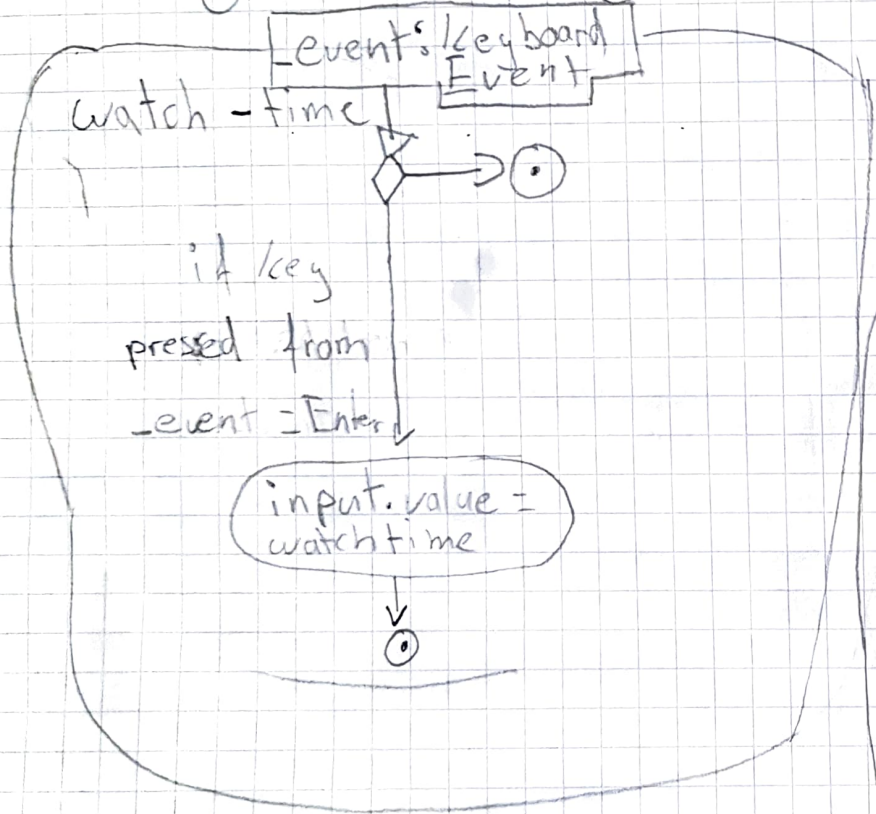 _event: Keyboard
Event
watch-time
if key
pressed from
_event = Enter
input.value =
watchtime